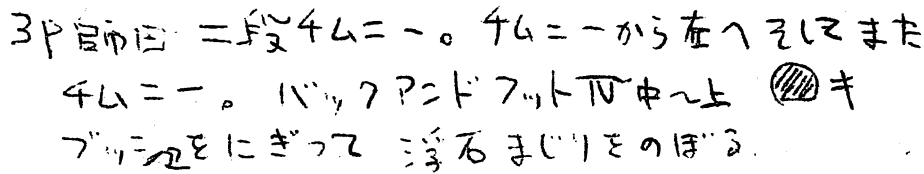 3P 師田 二段チムニー。チムニーから左へそしてまた
チムニー。バックアンドフットⅣ中〜上 キ
ブッシュをにぎって 浮石まじりをのぼる.